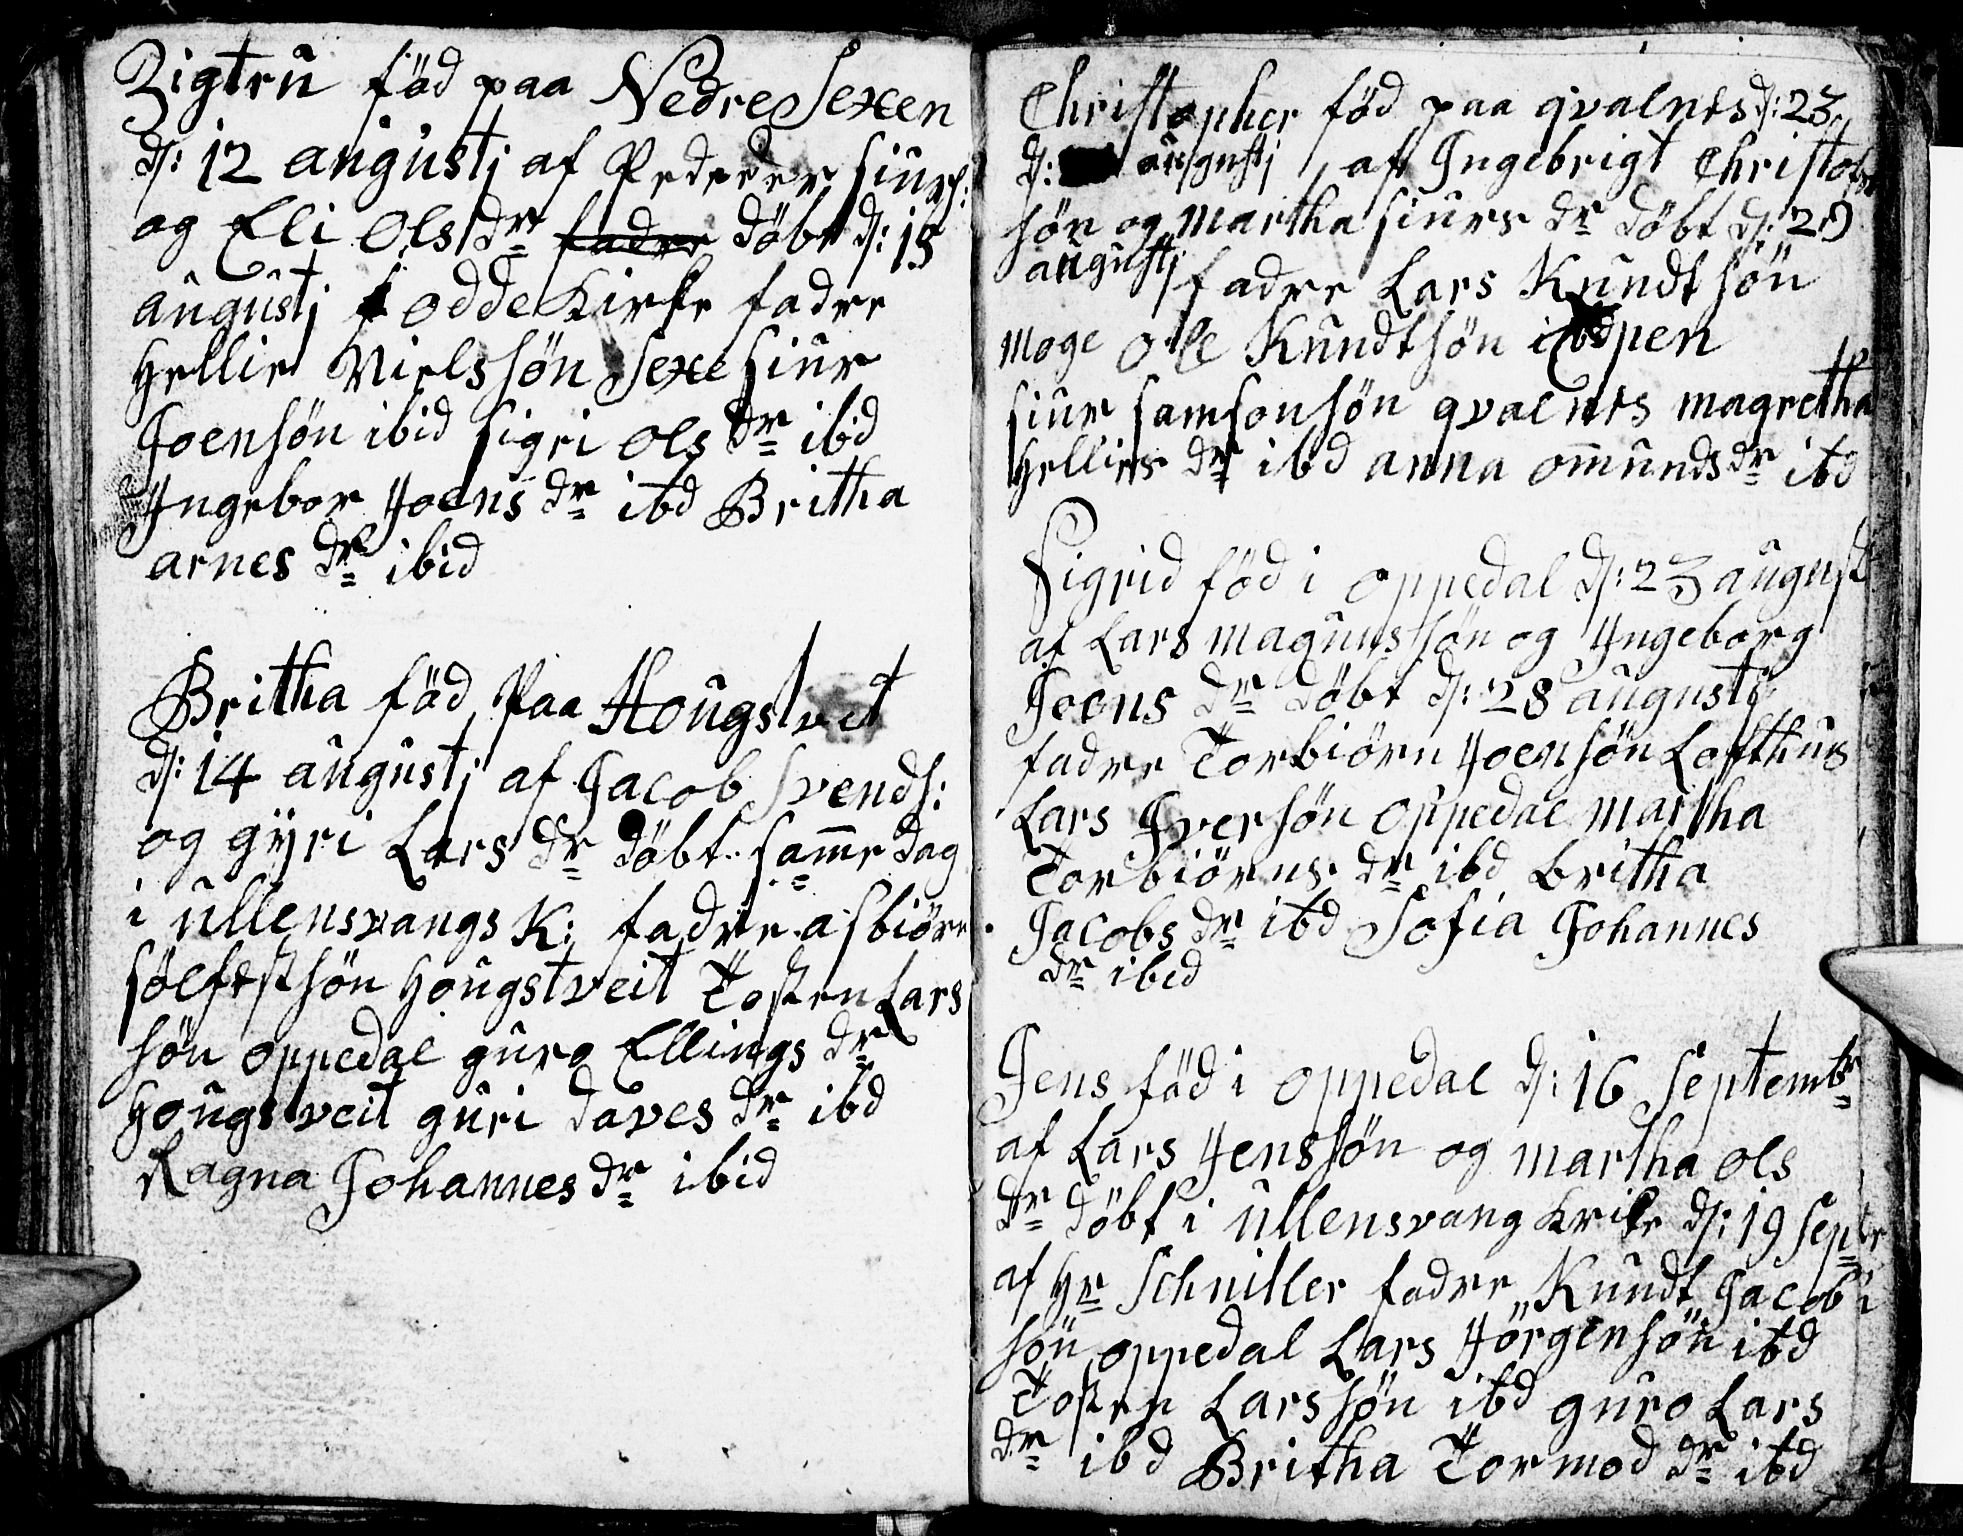 Zigtru föd paa Nedre Sexen
d: 12 augustj af Pedeer siurs:
og Eli Ols dr fadre döbt d: 15
augustj i odde Kirke fadre
Hellie Nielssön Sexe siur
Joensön ibid sigri ols dr ibid
Ingebor Joens dr ibd Britha
arnes dr ibid
Britha föd Paa Hougstvet
d: 14 augustj af Jacob Svends:
og gyri Lars dr döbt samme dag
i ullensvangs K: fadre asbiörn
sölfestsön Hougstveit Tosten Lars
sön oppedal guro Ellings dr
Hougstveit guri daves dr ibd
Ragna Johannes dr ibid
Christopher föd paa qvalnes d: 23
d: augustj af Ingebrigt Christofer
sön og Martha siurs dr döbt d: 29
augustj fadre Lars Kundtsön
Moge Ole Kundtsön i Espen
siur samsonsön qvalnes magretha
Hellies dr ibd anna omunds dr ibd
Sigrid föd i oppedal d: 23 august
af Lars magnussön og Ingeborg
Joens dr döbt d: 28 augustj
fadre Torbiörn Joensön Lofthus
Lars Iversön oppedal Martha
Torbiörns dr ibd britha
Jacobs dr ibd Sofia Johannes
dr ibid
Jens föd i oppedal d: 16 Septembr
af Lars Jenssön og martha ols
dr döbt i ullensvang Krike d: 19 Septr
af Hr Schnitler fadre Kundt Jacob
sön oppedal Lars Jörgensön ibd
Tosten Larssön ibd guro Lars
dr ibd Britha Tormod dr ibd